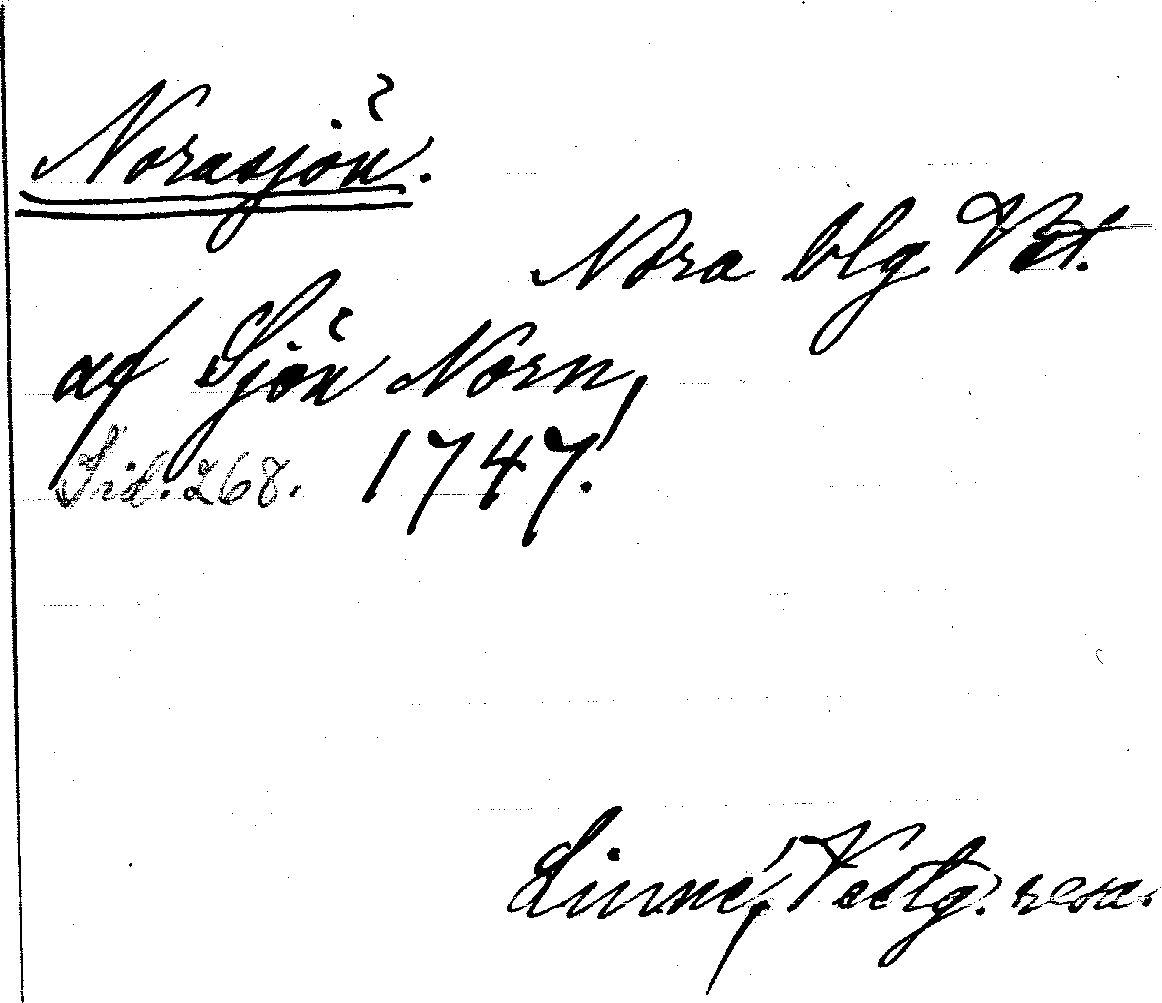 Norasjön.
Nora blg Vet.
af Sjön Norn,
Sid. 268. 1747.
Linné, Vestg. resa.